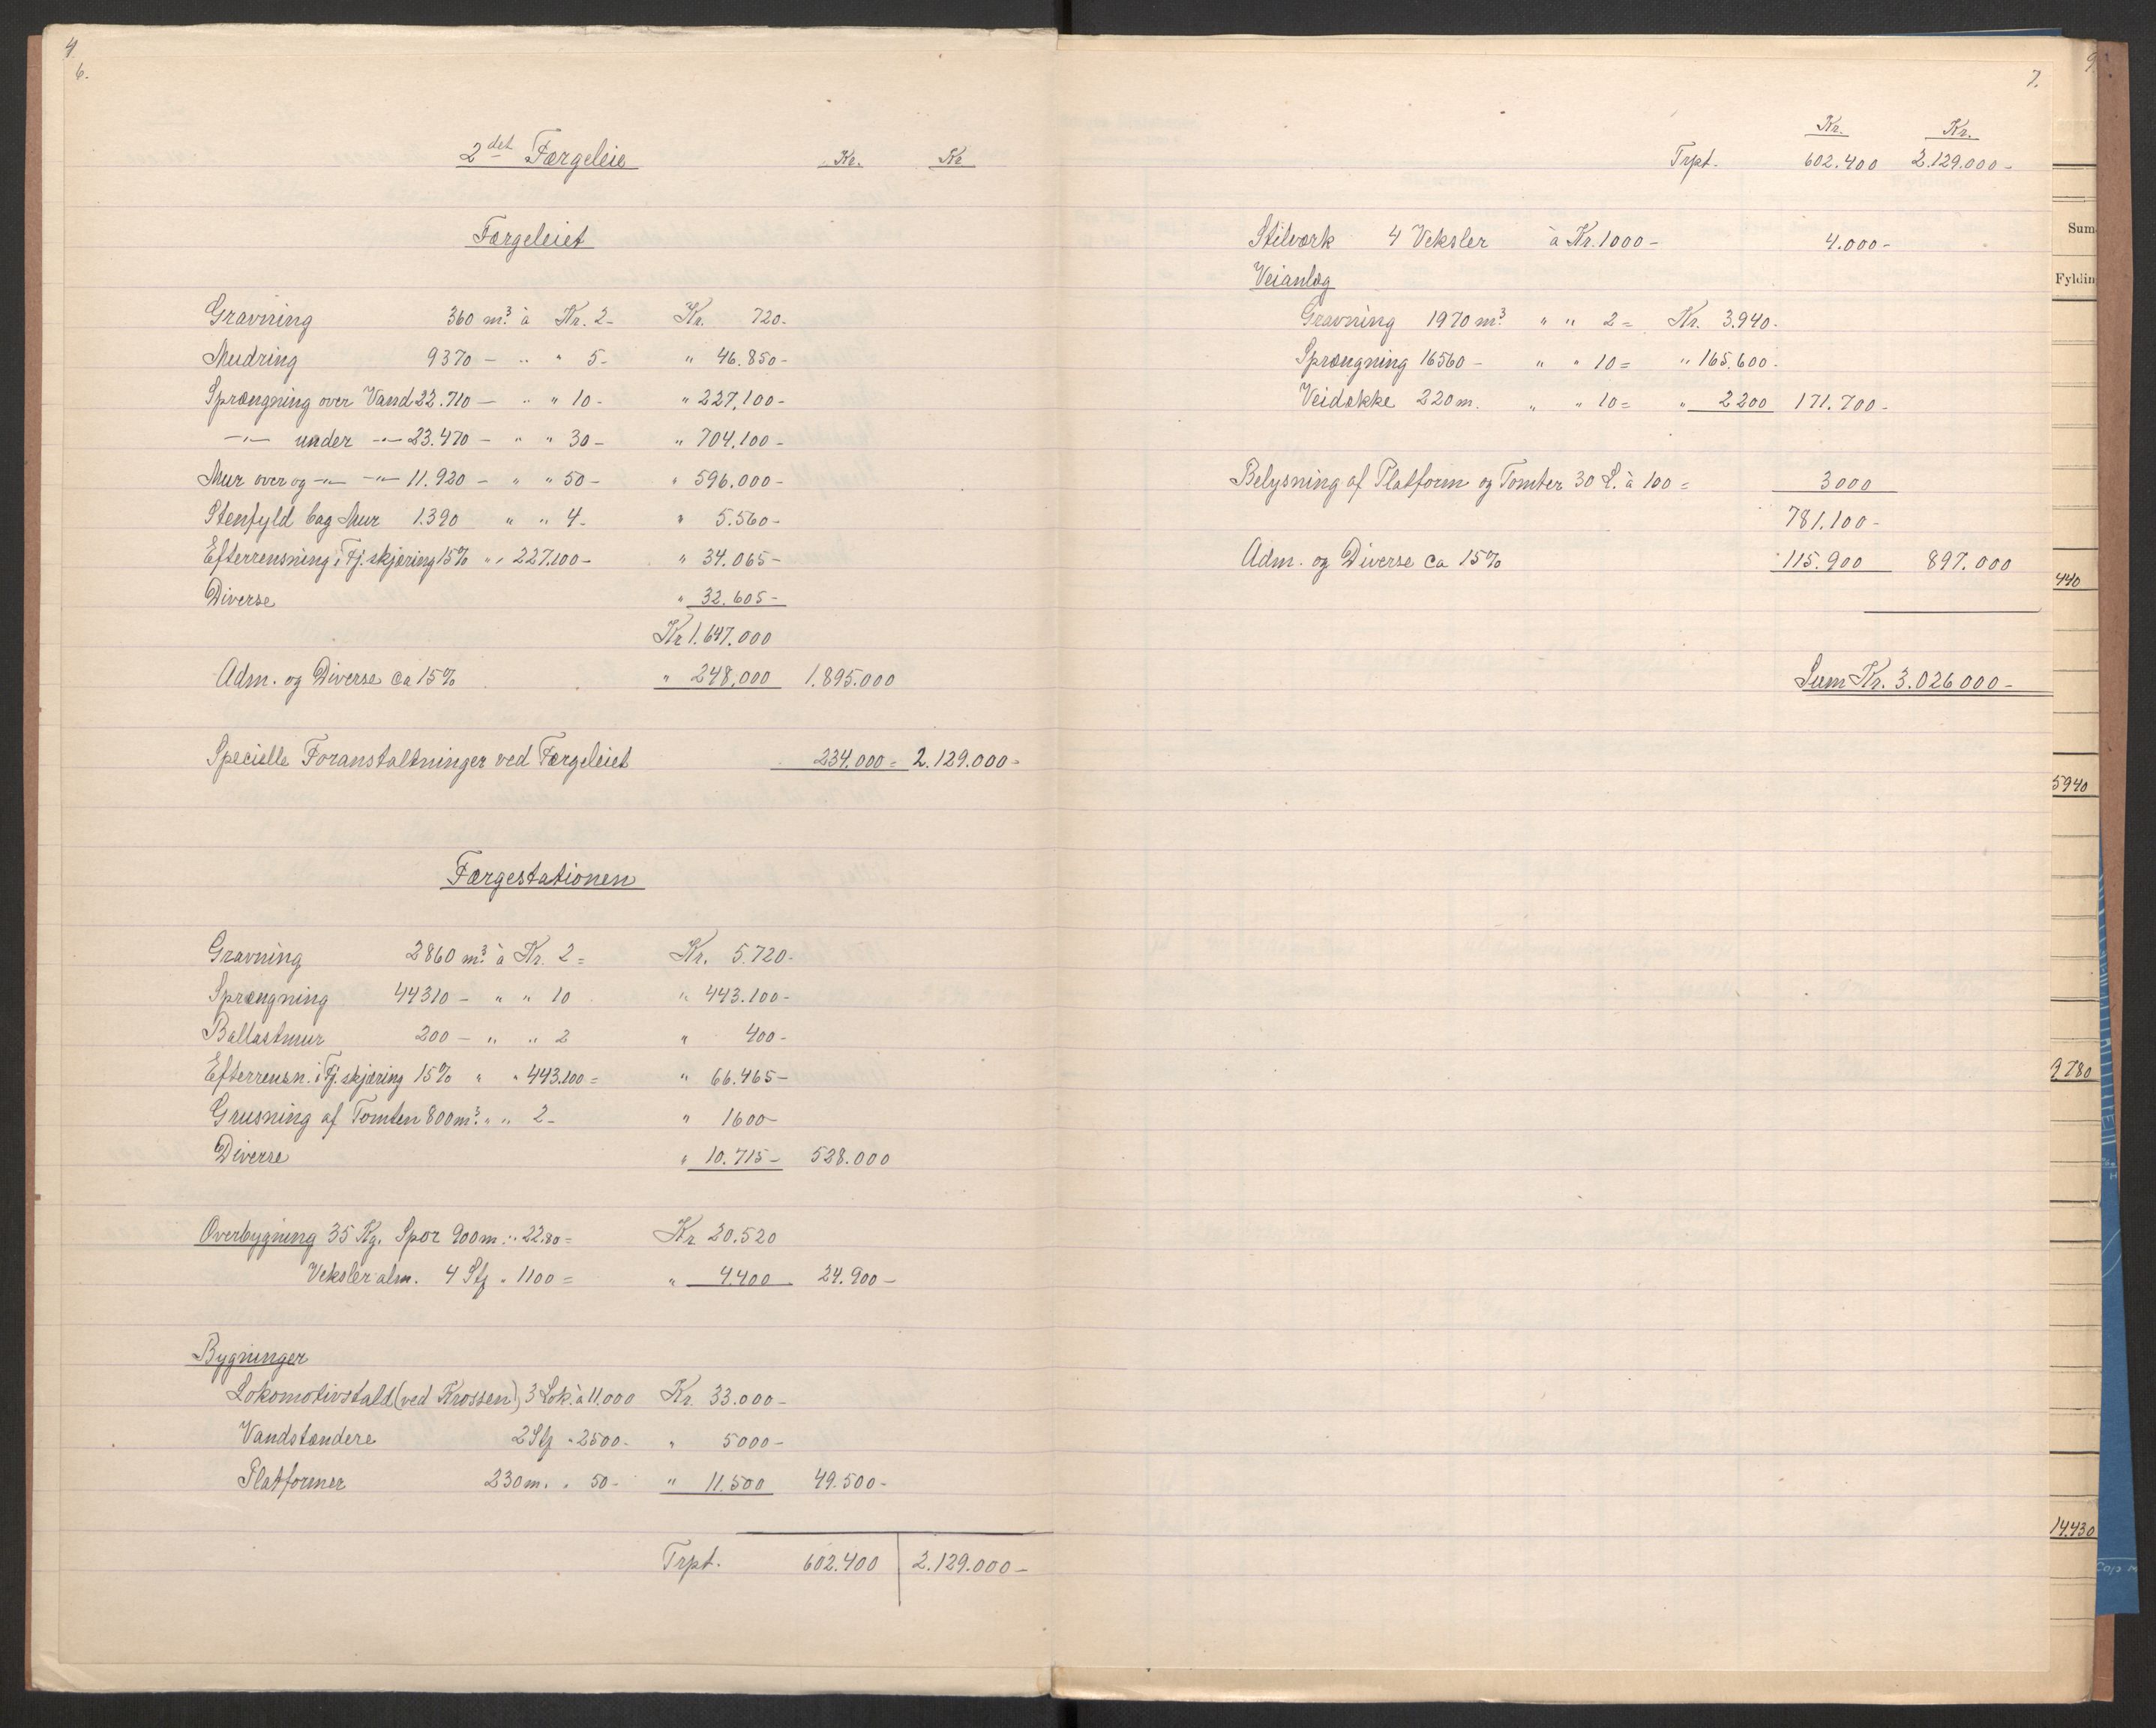 4
6.
2det Færgeleie Kr. Kr
Færgeleiet
Gravning 360 m³. à Kr. 2- Kr. 720-
Mudring 9370 — " " 5- " 46.850-
Sprængning over Vand 22.710 — " " 10- " 227,100-
—"— under —"— 23.470 — " " 30- " 704,100-
Mur over og —"— —"— 11.920 — " " 50- " 596.000-
Stenfyld bag Mur 1.390 " " 4- " 5.560-
Efterrensning i Fj. skjæring 15% " " 227.100- " 34.065-
Diverse " 32.605-
Kr 1.647.000
Adm. og Diverse ca 15% " 248,000 1.895.000
Specielle Foranstaltninger ved Færgeleiet 234.000 = 2.129.000-
Færgestationen
Gravning 2860 m³. à Kr. 2 = Kr. 5.720-
Sprængning 44310 — " " 10 " 443.100-
Ballastmur 200 — " " 2 " 400-
Efterrensn. i Fj. skjæring 15% " " 443.100 = " 66.465-
Grusning af Tomten 800 m³. " " 2- " 1600-
Diverse " 10.715- 528.000
Overbygning 35 Kg. Spor 900 m. " 22.80 = Kr. 20.520
Veksler alm. 4 Stk " 1100 = " 4.400 24.900-
Bygninger
Lokomotivstald (ved Krossen) 3 Lok. à 11.000 Kr. 33.000-
Vandstændere 2 Stk " 2500- " 5000-
Platformer 230 m. " 50- " 11.500 49.500-
Trpt. 602.400 2.129.000-
7.
Kr. Kr.
Trpt. 602.400 2.129.000-
Stilverk 4 Veksler à Kr. 1000- 4.000-
Veianlæg
Gravning 1970 m³. " " 2 = Kr. 3.940-
Sprængning 16560 — " " 10 = " 165.600-
Veidække 220 m. " " 10 = " 2200 171.700-
Belysning af Platform og Tomter 30 L. à 100 = 3000
781.100-
Adm. og Diverse ca 15% 115.900 897.000
Sum Kr. 3.026000-
9
Sum
Fyldin
440
5940
9780
14.430